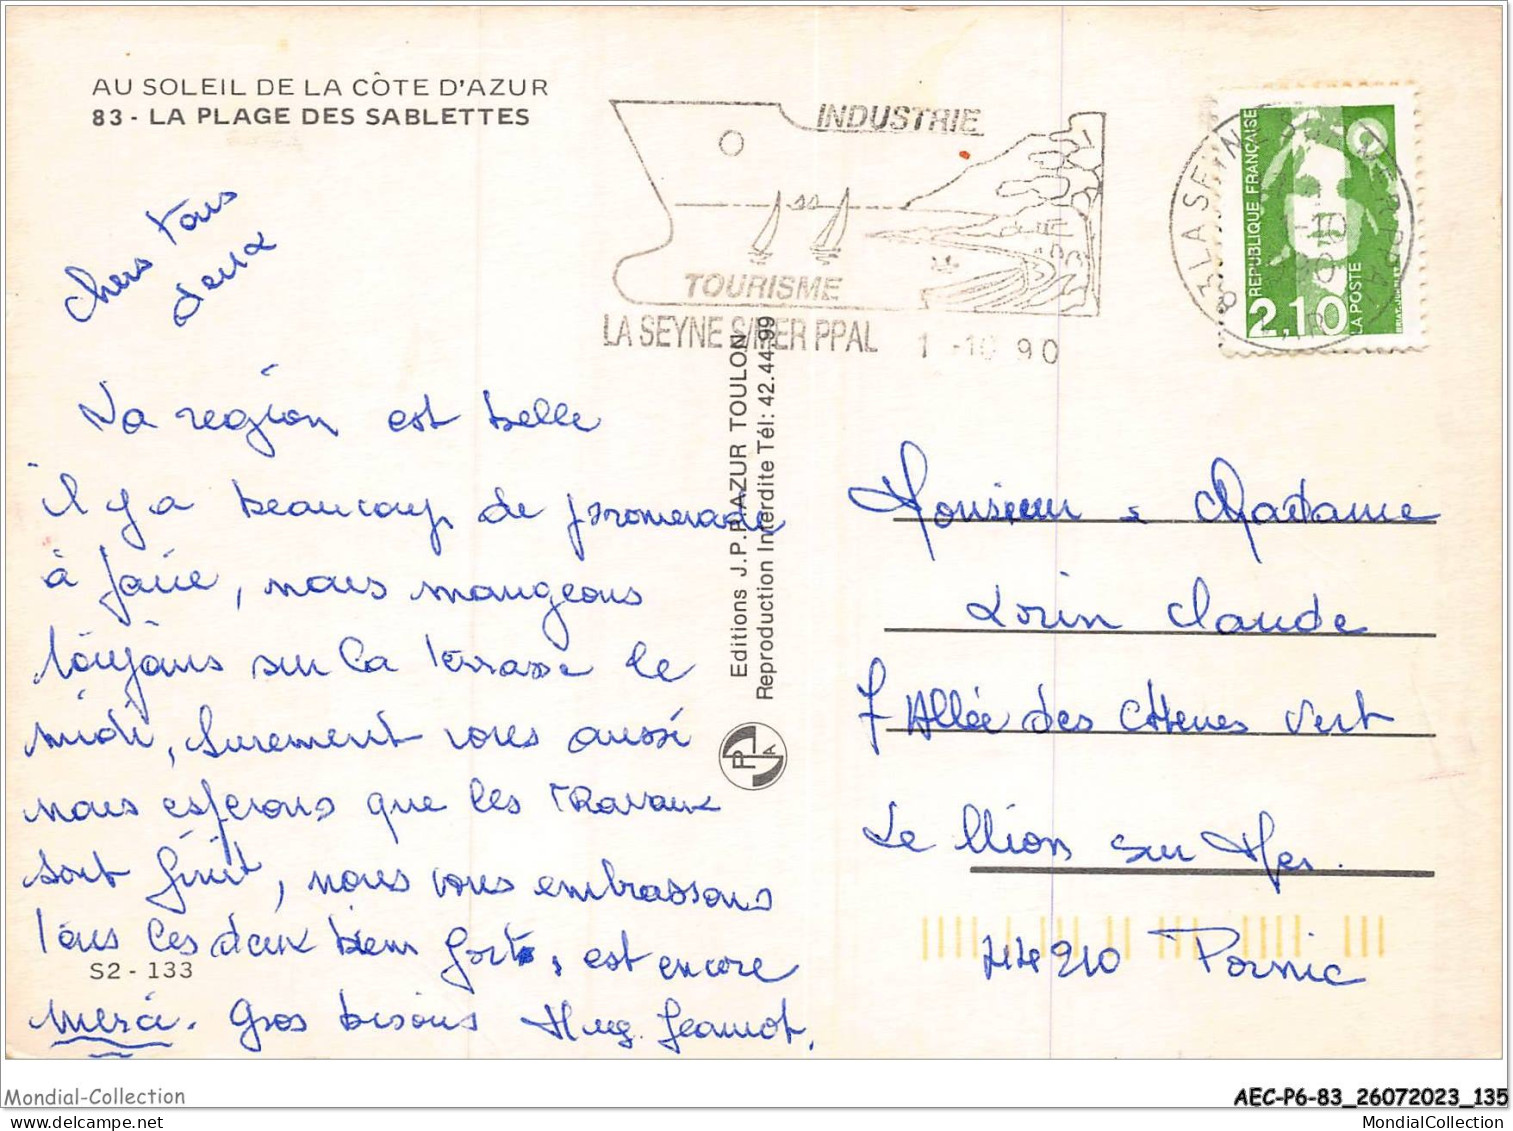 AU SOLEIL DE LA CÔTE D'AZUR
83 - LA PLAGE DES SABLETTES
INDUSTRIE
TOURISME
LA SEYNE S/MER PPAL
1 -10 90
83 LA SEYNE S/MER PPAL
REPUBLIQUE FRANÇAISE
2,10
LA POSTE
chers tous
deux
La region est belle
il y a beaucoup de promenade
à faire, nous mangeons
toujours sur la terrasse le
midi, surement vous aussi
nous esperons que les travaux
sont finit, nous vous embrassons
tous les deux bien fort, est encore
merci. Gros bisous Hug. Jeannot.
S2 - 133
Editions J.P.P./AZUR TOULON
Reproduction Interdite Tél: 42.44.99
PPA
Monsieur & Madame
Lorin Claude
7 Allée des chenes vert
Le Clion sur Mer.
44210 Pornic
Mondial-Collection
AEC-P6-83_26072023_135
MondialCollection